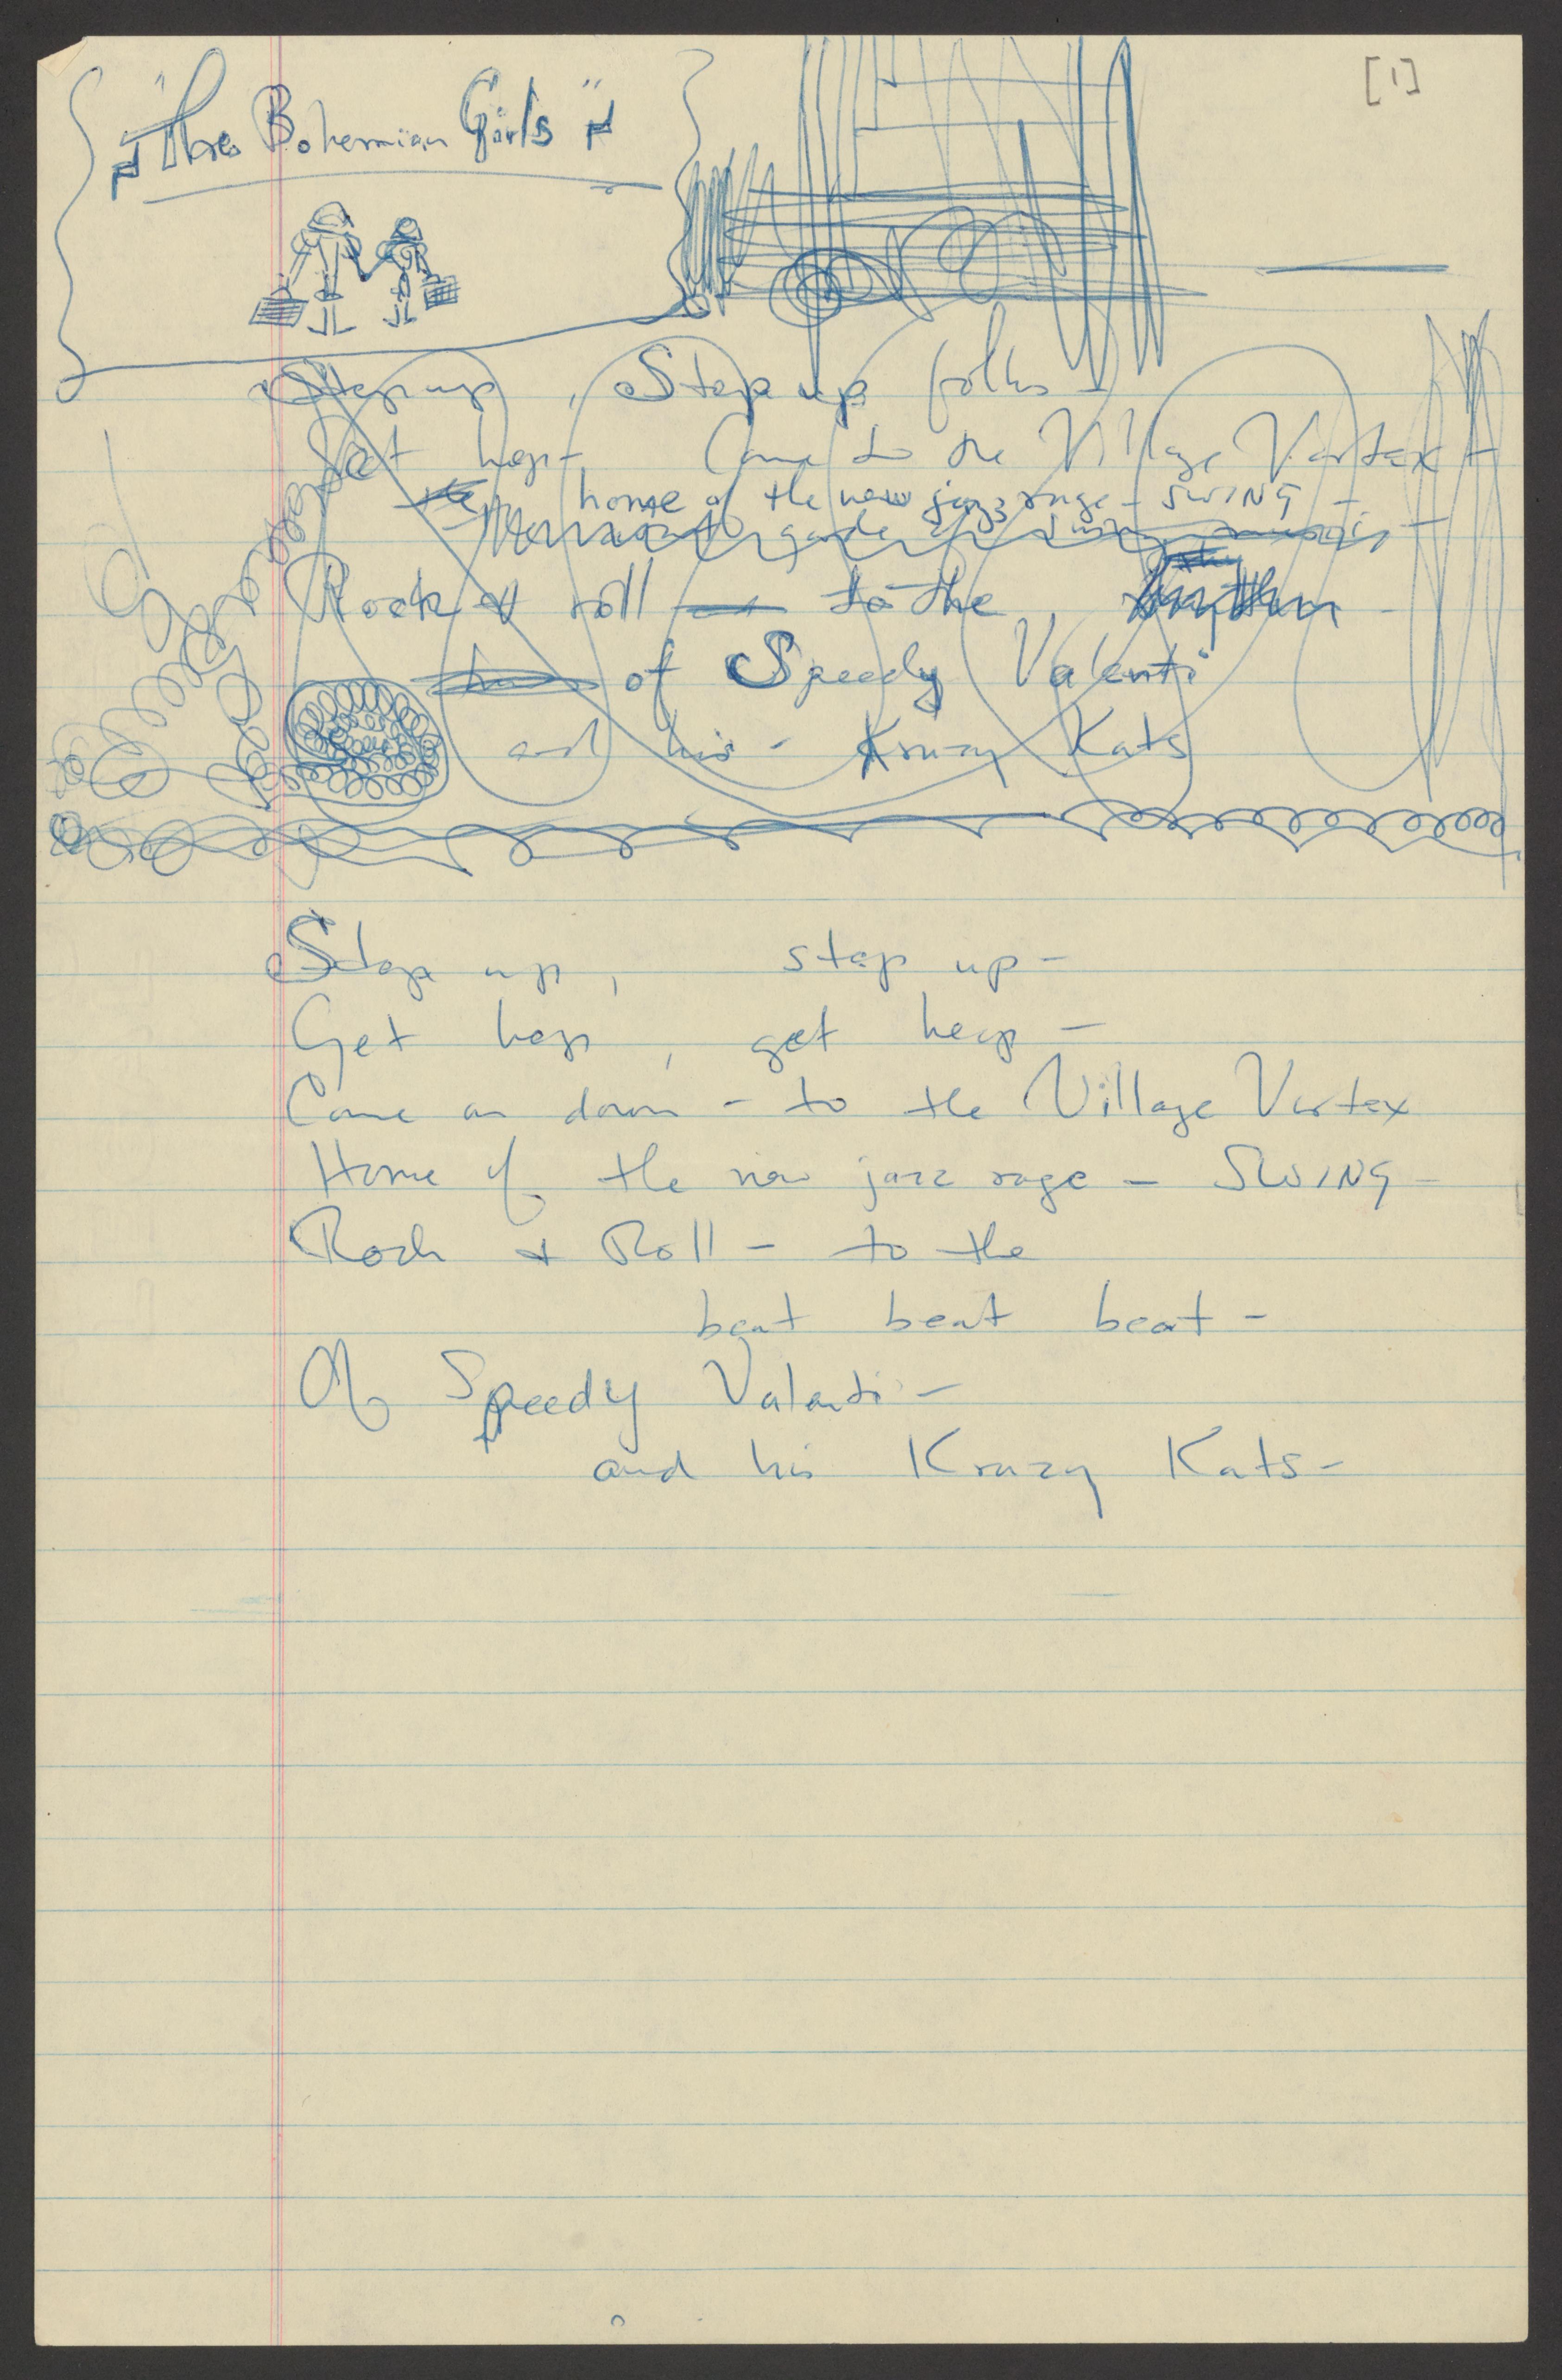 [1]
"Three Bohemian Girls"
Step up, Step up folks -
Get hep - Come to the Village Vortex -
home of the new jazz rage - SWING -
garde jazz swing music -
Rock & roll to the, rhythm -
of Speedy Valenti
and his - Krazy Kats
Step up, step up -
Get hep, get hep -
Come on down - to the Village Vortex
Home of the new jazz rage - SWING -
Rock & Roll - to the
beat beat beat -
Of Speedy Valenti -
and his Krazy Kats -